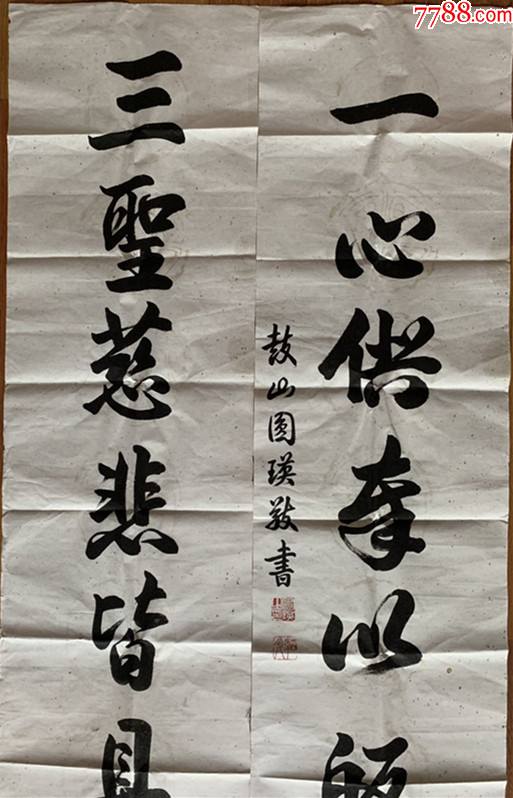 7788.com
一心供奉以
鼓山圓瑛敬書
三聖慈悲皆具